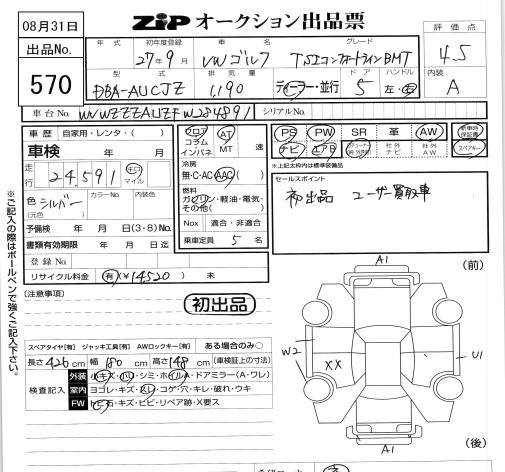 08月31日
ZIP オークション出品票
評価点
4.5
出品No.
570
年式
初年度登録
車名
グレード
27年9月
VWゴルフ
TSIコンフォートラインBMT
内装
A
型式
排気量
ドア
ハンドル
DBA-AUCJZ
1,190
ディーラー・並行
5
左・右
車台No.
シリアルNo.
車歴
自家用・レンタ・( )
車検
年 月
走行
24,591
キロ
マイル
色
シルバー
(元色)
カラーNo.
内装色
予備検 年 月 日(3・8)No.
書類有効期限 年 月 日迄
登録No.
リサイクル料金
有(¥14520) 未
フロア
コラム
インパネ
AT
MT
速
冷房
無・C・AC・AAC( )
燃料
ガソリン・軽油・電気・
その他( )
Nox
適合・非適合
乗車定員 5 名
PS
PW
SR
革
AW
新車時保証書
ナビ
エアB
社外ナビ
社外AW
スペアキー
※上記太わく内は標準装備品
セールスポイント
初出品 ユーザー買取車
※ご記入の際はボールペンで強くご記入下さい。
[注意事項]
初出品
スペアタイヤ[有] ジャッキ工具[有] AWロックキー[有]
ある場合のみ○
長さ426cm 幅180cm 高さ148cm (車検証上の寸法)
検査記入
外装
小キズ・ハリ・シミ・ホイルA・ドアミラー(A・ワレ)
室内
ヨゴレ・キズ・スレ・コゲ・穴・キレ・破れ・ウキ
FW
トビ石・キズ・ヒビ・リペア跡・X要ス
A1
(前)
W2
XX
U1
A1
(後)